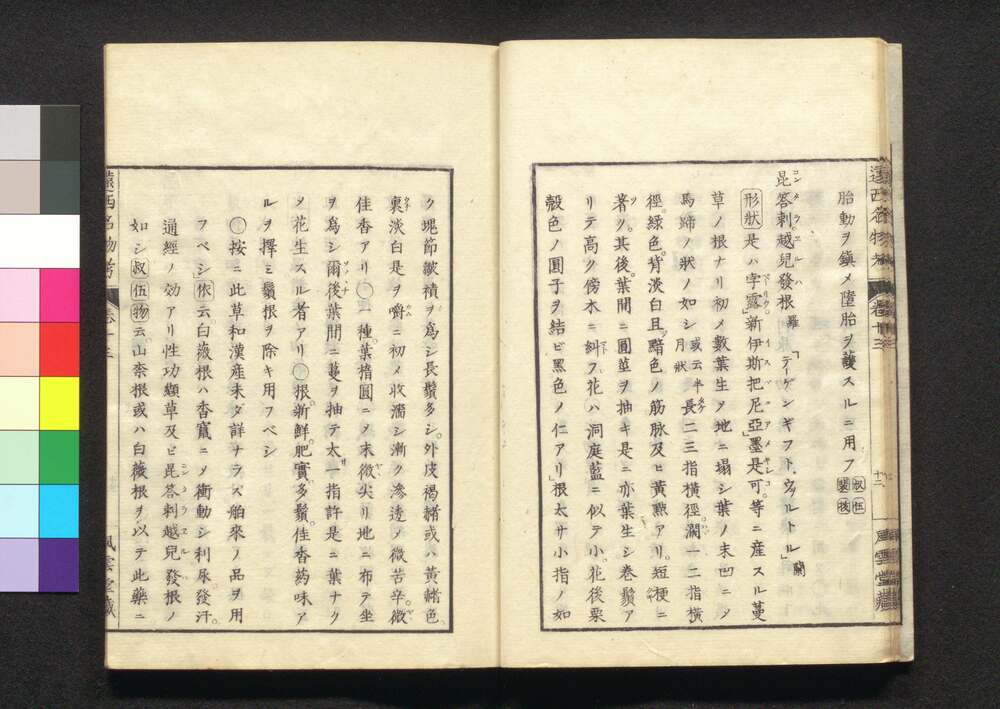 胎動ヲ鎮メ墮胎ヲ護スルニ用フ
昆答剌越兒發根 羅 「テーゲンギフト、ウヲルトル」蘭
形狀 是ハ字露新伊斯把尼亞墨是可等ニ産スル蔓
草ノ根ナリ初メ數葉生ソ地ニ塌シ葉ノ末凹ニシ
馬蹄ノ狀ノ如シ 或云半月狀 長二三指橫徑濶一二指橫
徑綠色背淡白且黯色ノ筋脉及ヒ黃㸃アリ短梗ニ
著ク其後葉間ニ圓莖ヲ抽キ是ニ亦葉生シ卷鬚ア
リテ高ク傍木ニ糾フ花ハ洞庭藍ニ似テ小花後栗
殼色ノ圓子ヲ結ビ黑色ノ仁アリ根太サ小指ノ如
遠西名物考
卷十三
風雲堂藏
ク塊節皺襀ヲ爲シ長鬚多シ外皮褐赭或ハ黃赭色
裏淡白是ヲ嚼ニ初メ收濇シ漸ク滲透ノ微苦辛微
佳香アリ〇一種葉楕圓ニメ末微尖リ地ニ布テ坐
ヲ爲シ爾後葉間ニ蔓ヲ抽テ太一指許是ニ葉ナク
メ花生スル者アリ〇根新鮮肥實多鬚佳香葯味ア
ルヲ擇ミ鬚根ヲ除キ用フベシ
按ニ此草和漢産未ダ詳ナラズ舶來ノ品ヲ用
フベシ 依云白薇根ハ香竄ニメ衝動シ利尿發汗
通經ノ効アリ性功纈草及ヒ昆答剌越兒發根ノ
如シ 叔伍物云山柰根或ハ白薇根ヲ以テ此藥ニ